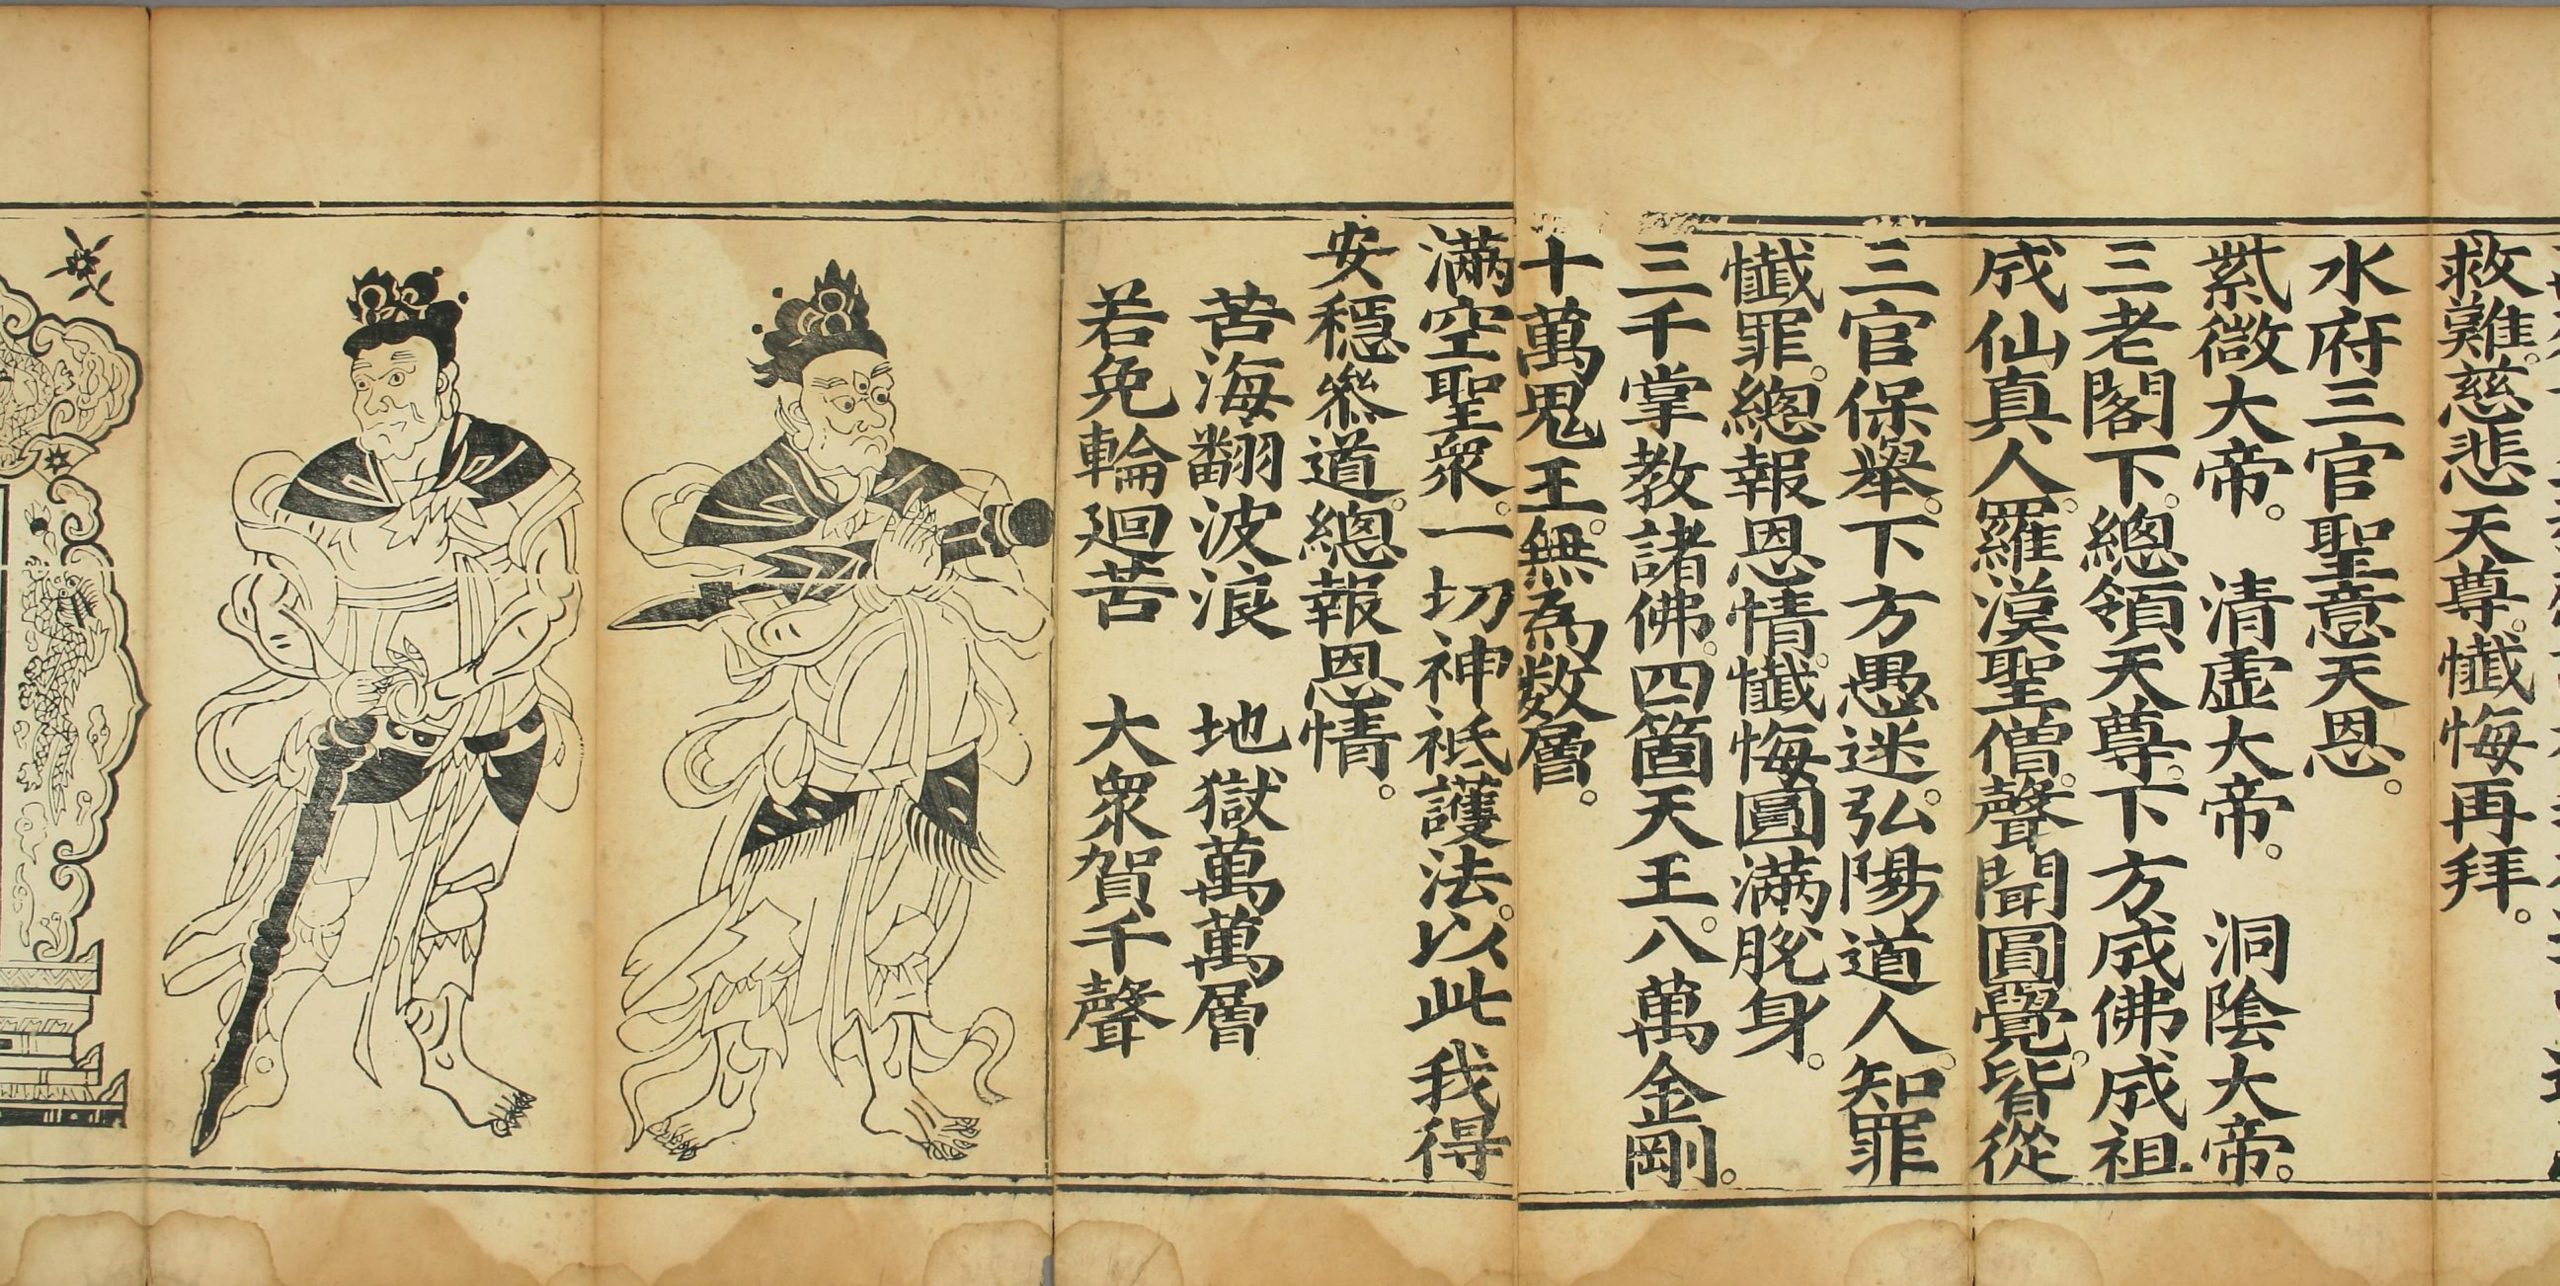 救難。慈悲天尊。懺悔再拜。
水府三官聖意天恩。
紫微大帝。 清虛大帝。 洞陰大帝。
三老閣下。總領天尊。下方成佛成祖.
成仙真人。羅漢聖僧。聲聞圓覺。皆從
三官保舉。下方愚迷。弘陽道人。知罪
懺罪。總報恩情。懺悔圓滿脫身。
三千掌教諸佛。四箇天王。八萬金剛。
十萬鬼王。無為数層。
滿空聖衆。一切神祇護法。以此我得
安穩叅道。總報恩情。
苦海翻波浪 地獄萬萬層
若免輪迴苦 大衆賀千聲